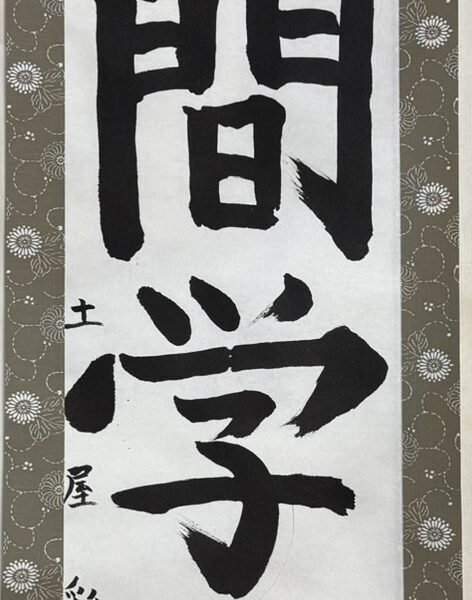 間学
土屋